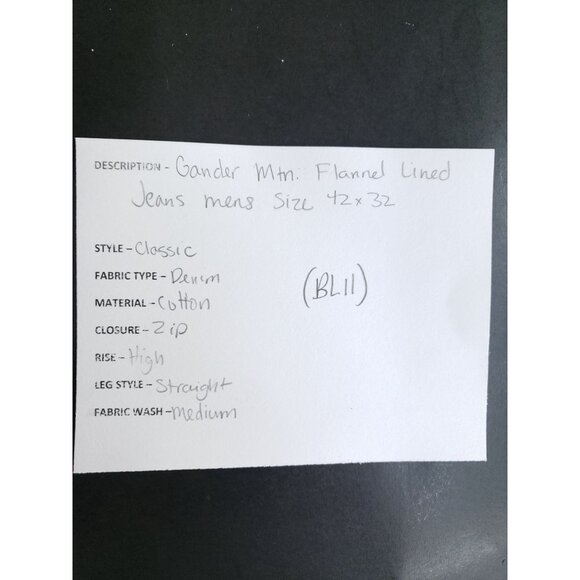 DESCRIPTION - Gander Mtn. Flannel Lined
Jeans mens Size 42x32
STYLE - Classic
FABRIC TYPE - Denim
(BL11)
MATERIAL - Cotton
CLOSURE - Zip
RISE - High
LEG STYLE - Straight
FABRIC WASH - Medium